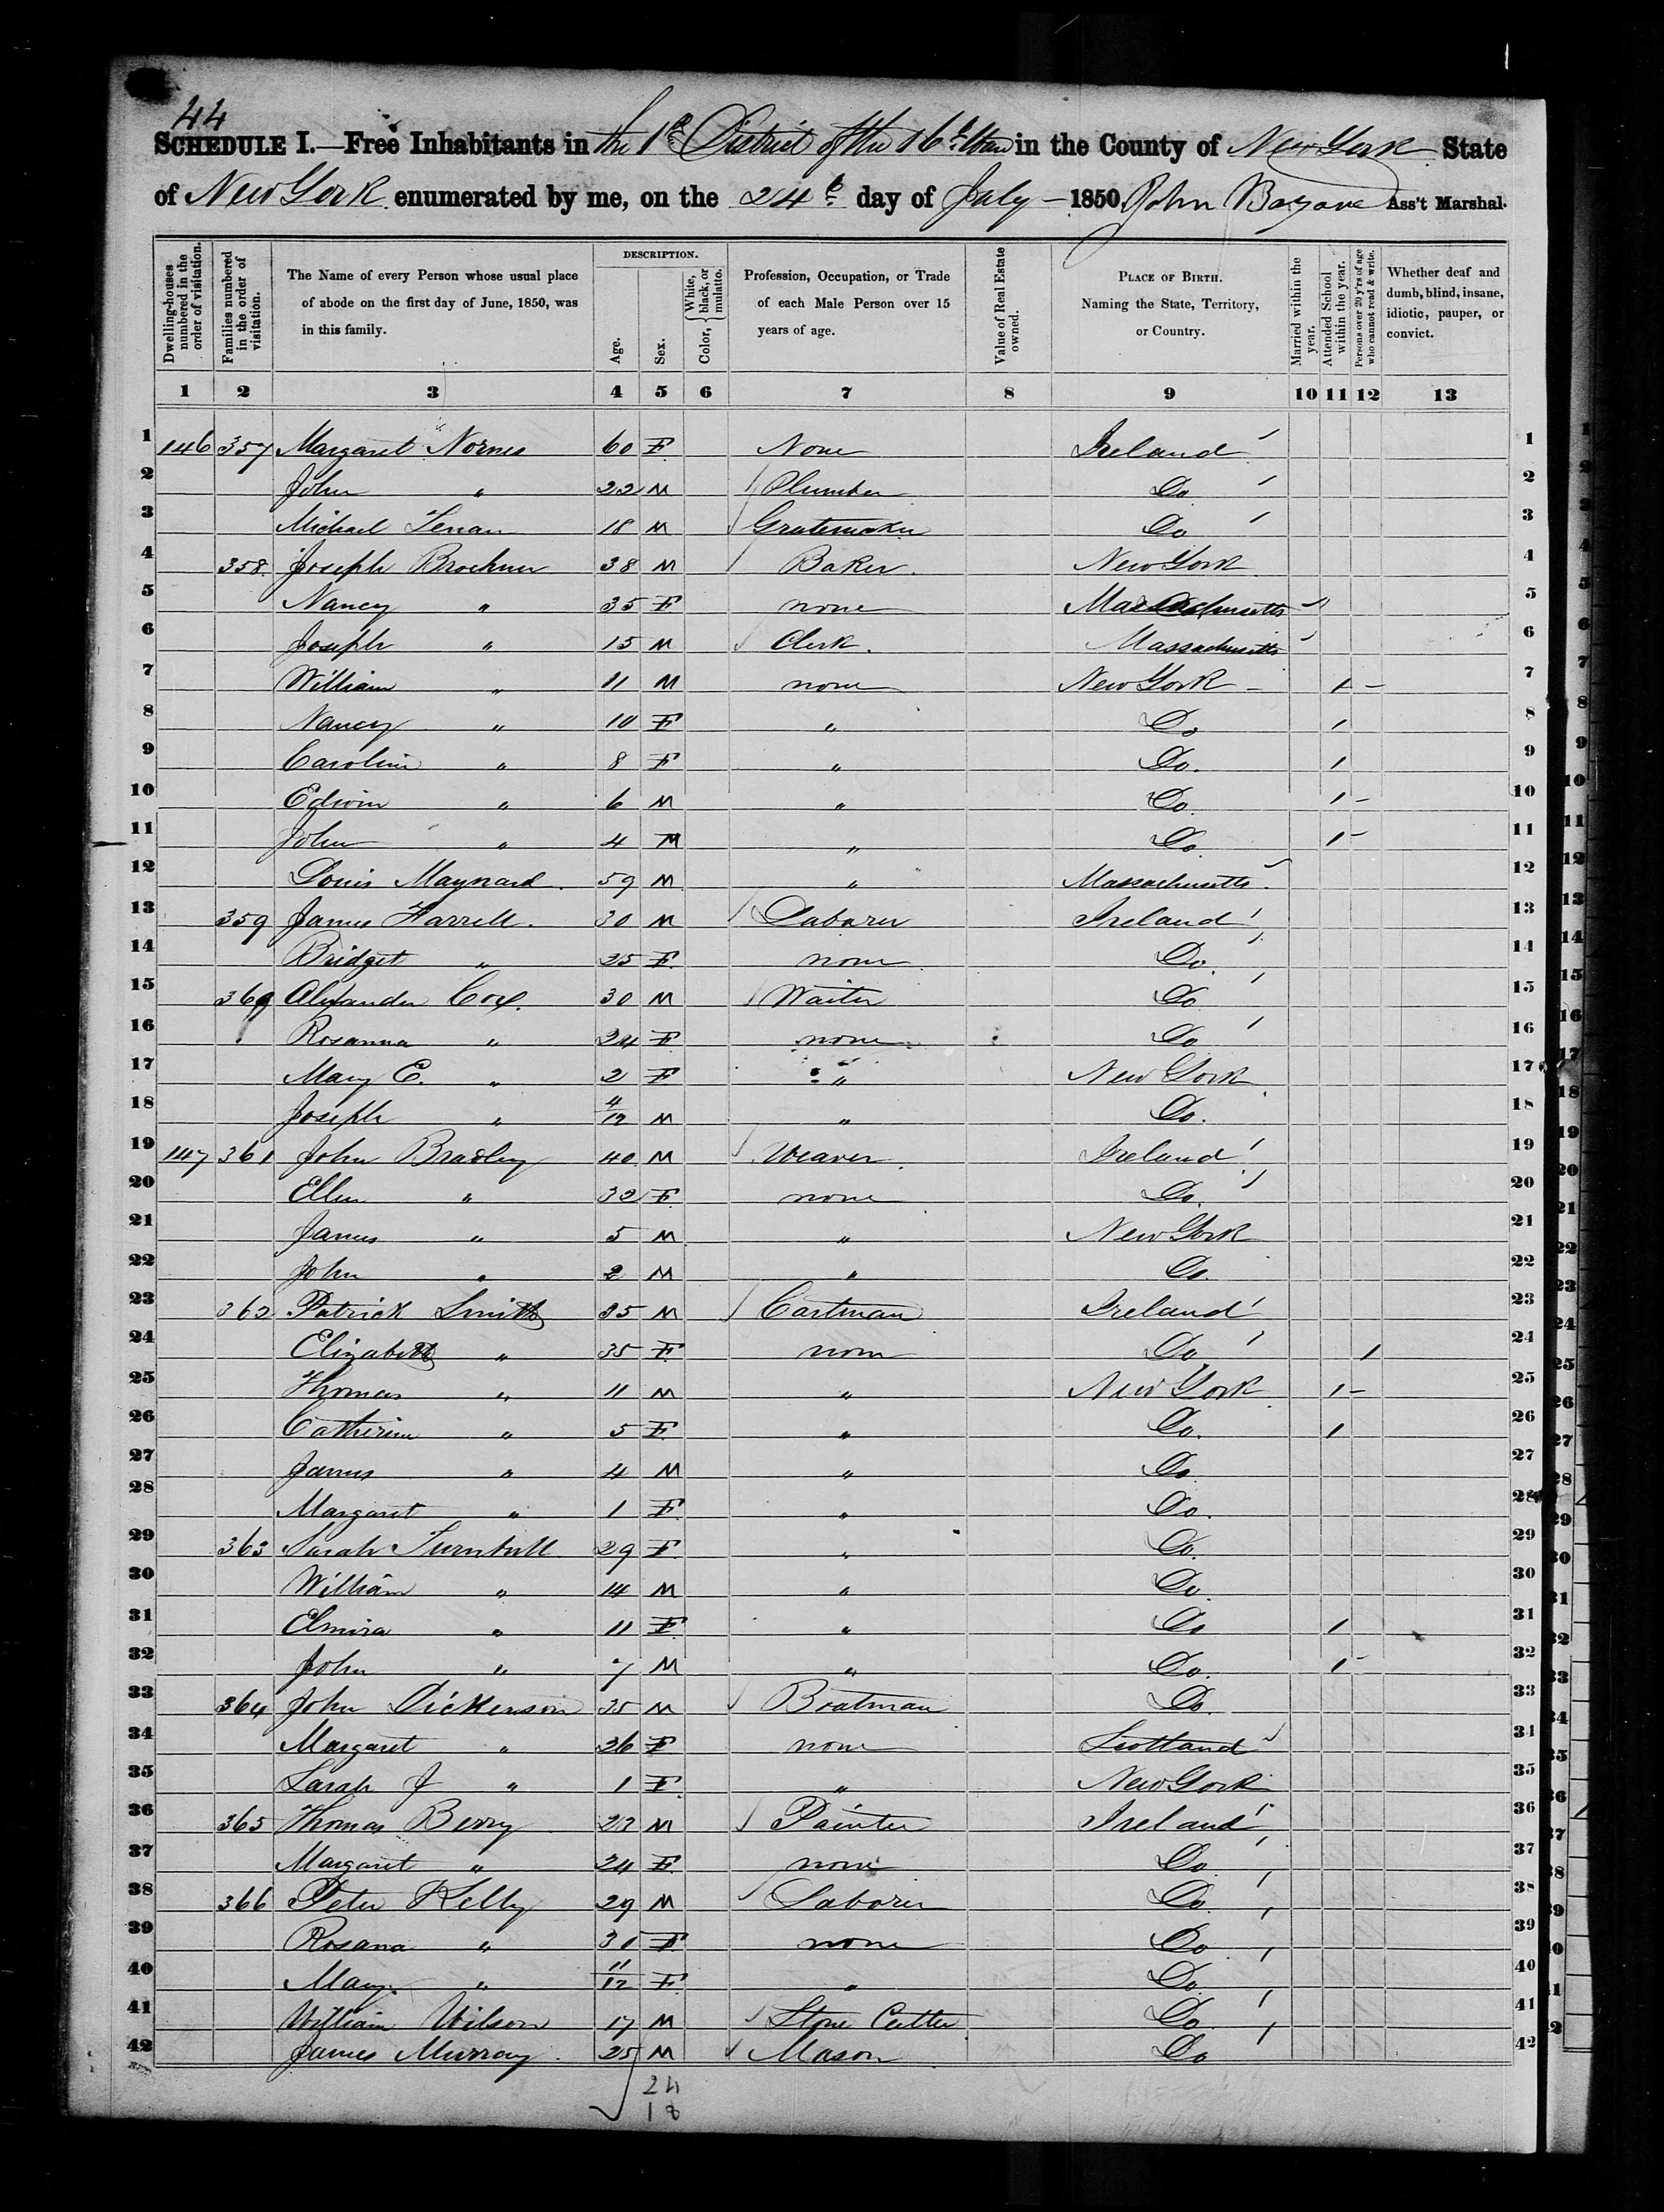 44
SCHEDULE I.—Free Inhabitants in the 1st District of the 16th Ward in the County of New York State
of New York enumerated by me, on the 24th day of July — 1850. John Ass't Marshal.
Dwelling-houses numbered in the order of visitation.
Families numbered in the order of visitation.
The Name of every Person whose usual place of abode on the first day of June, 1850, was in this family.
DESCRIPTION.
Age.
Sex.
Color, { White, black, or mulatto.
Profession, Occupation, or Trade of each Male Person over 15 years of age.
Value of Real Estate owned.
PLACE OF BIRTH. Naming the State, Territory, or Country.
Married within the year.
Attended School within the year.
Persons over 20 y'rs of age who cannot read & write.
Whether deaf and dumb, blind, insane, idiotic, pauper, or convict.
1 2 3 4 5 6 7 8 9 10 11 12 13
1 146 357 Margaret Nornes 60 F None Ireland 1
2 John " 22 M Plumber Do 2
3 Michael 18 M Gratemaker Do 3
4 358 Joseph Brockner 38 M Baker New York 4
5 Nancy " 35 F none Massachusetts 5
6 Joseph " 15 M Clerk. Massachusetts 6
7 William " 11 M none New York 1 7
8 Nancy " 10 F " Do 1 8
9 Caroline " 8 F " Do. 1 9
10 Edwin " 6 M " Do 1 10
11 John " 4 M " Do 1 11
12 Louis Maynard 59 M " Massachusetts 12
13 359 James Farrell. 30 M Laborer Ireland 13
14 Bridget " 25 F none Do 14
15 360 Alexander Cox. 30 M Waiter Do 15
16 Rosanna " 24 F none Do 16
17 Mary E. " 2 F " New York 17
18 Joseph " 4/12 M " Do. 18
19 147 361 John Bradley 40 M Weaver Ireland 19
20 Ellen " 32 F none Do. 20
21 James " 5 M " New York 21
22 John " 2 M " Do. 22
23 362 Patrick Smith 35 M Cartman Ireland 23
24 Elizabeth " 35 F none Do 1 24
25 Thomas " 11 M " New York 1 25
26 Catherine " 5 F " Do. 1 26
27 James " 4 M " Do 27
28 Margaret " 1 F " Do. 28
29 363 Sarah Turnbull 29 F " Do. 29
30 William " 14 M " Do 30
31 Elmira " 11 F " Do 1 31
32 John " 7 M " Do. 1 32
33 364 John Dickenson 35 M Boatman Do. 33
34 Margaret " 26 F none Scotland 34
35 Sarah J " 1 F " New York 35
36 365 Thomas Berry 23 M Painter Ireland 36
37 Margaret " 24 F none Do 37
38 366 Peter Kelly 29 M Laborer Do. 38
39 Rosana " 30 F none Do 39
40 Mary " 11/12 F " Do 40
41 William Wilson 17 M Stone Cutter Do 41
42 James Murray 25 M Mason Do 42
24
18